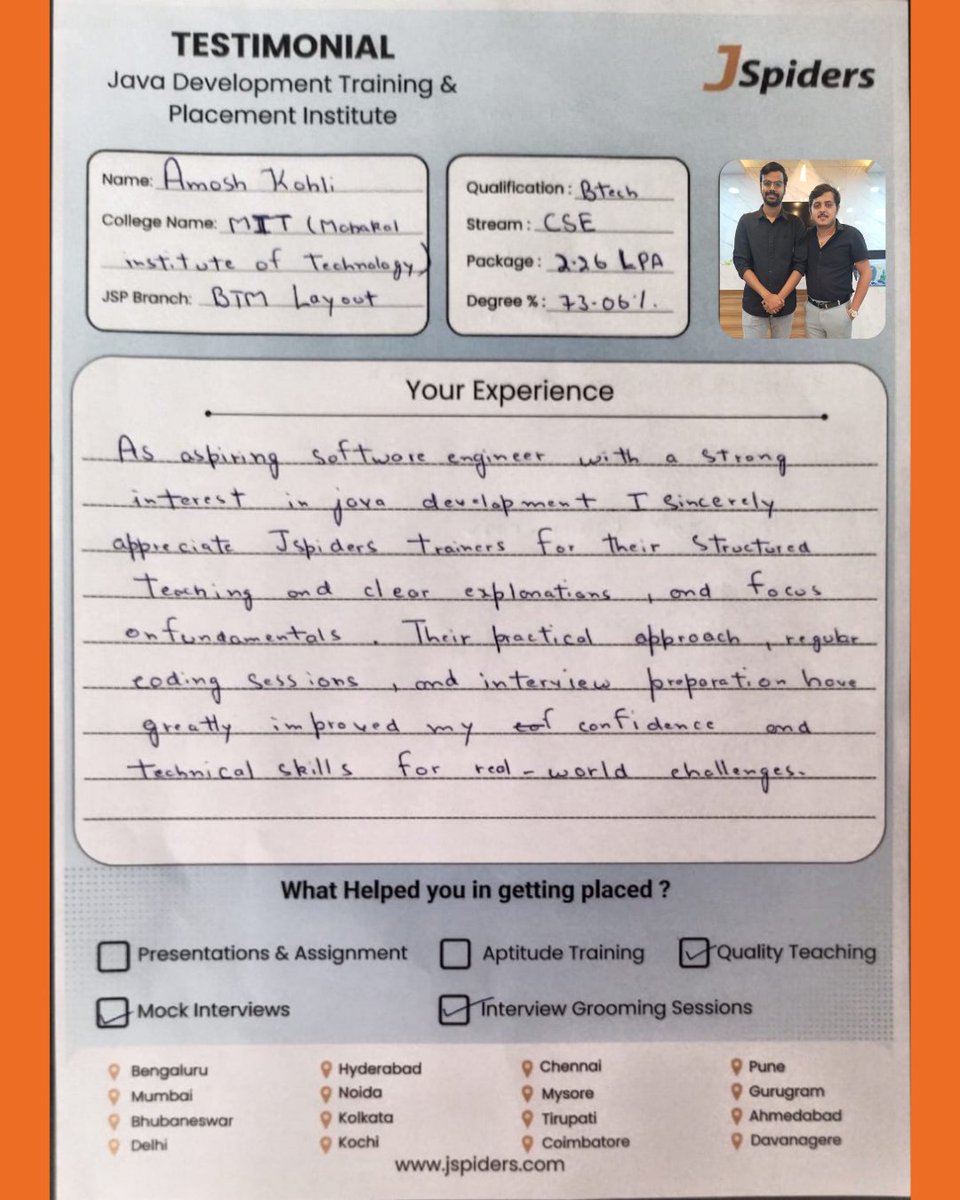 TESTIMONIAL
Java Development Training &
Placement Institute
JSpiders
Name: Amosh Kohli
College Name: MIT (Mahakal
institute of Technology)
JSP Branch: BTM Layout
Qualification: Btech
Stream: CSE
Package: 2.26 LPA
Degree %: 73.06%.
Your Experience
As aspiring software engineer with a strong
interest in java development I sincerely
appreciate Jspiders trainers for their structured
teaching and clear explanations, and focus
on fundamentals. Their practical approach, regular
coding sessions, and interview preparation have
greatly improved my confidence and
technical skills for real-world challenges.
What Helped you in getting placed ?
Presentations & Assignment
Aptitude Training
Quality Teaching
Mock Interviews
Interview Grooming Sessions
Bengaluru
Mumbai
Bhubaneswar
Delhi
Hyderabad
Noida
Kolkata
Kochi
Chennai
Mysore
Tirupati
Coimbatore
Pune
Gurugram
Ahmedabad
Davanagere
www.jspiders.com